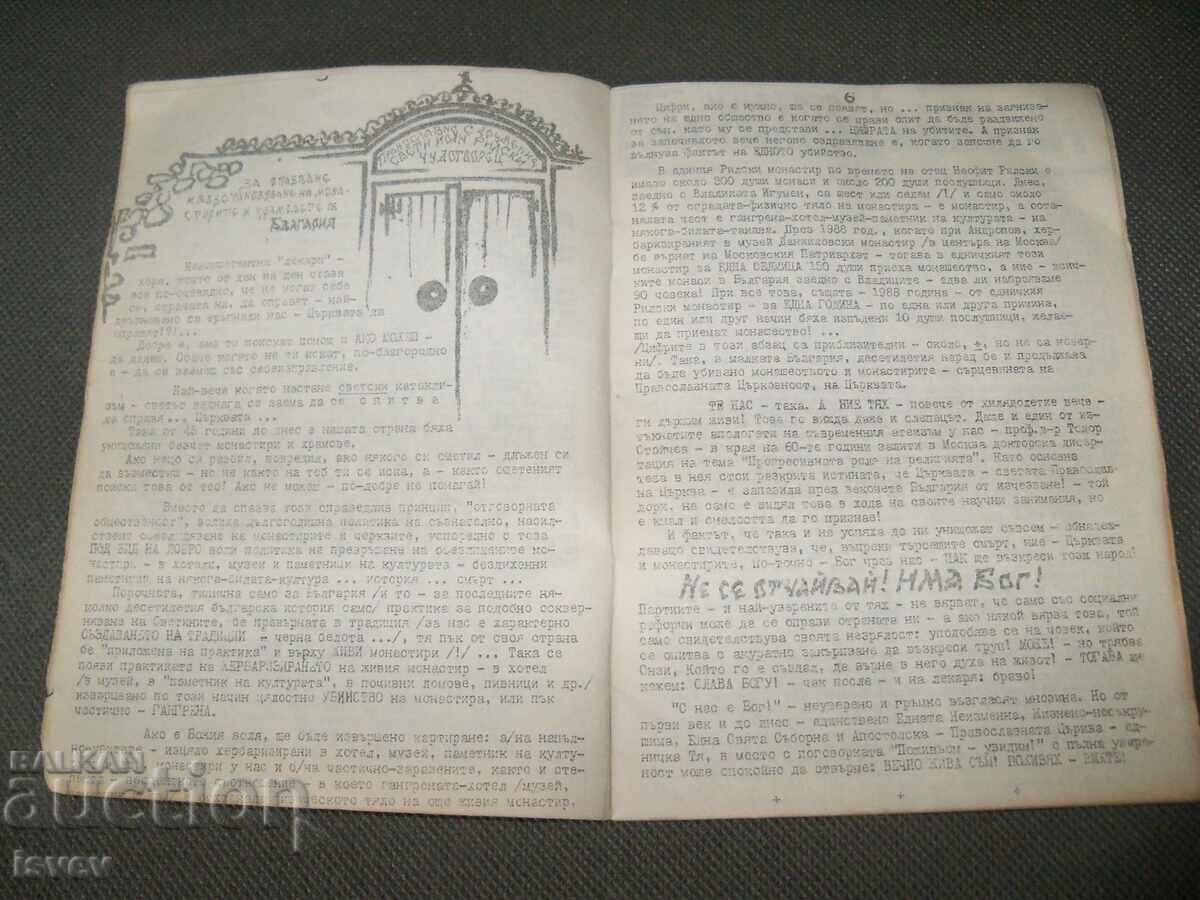 ПРАВОСЛАВНО С ХРИСТИЯН.
СВЕТИ ИОАН РИЛСКИ
ЧУДОТВОРЕЦ
ЗА ОПАЗВАНЕ
И ВЪЗСТАНОВЯВАНЕ НА МОНА-
СТИРИТЕ И ХРАМОВЕТЕ В
БЪЛГАРИЯ
Некомпетентни "лекари" -
хора, които от ден на ден става
все по-очевидно, че не могат себе
си, страната ни, да оправят - най-
са тръгнали нас - Църквата да
оправят!?!...
Добре е, ако ти поискат помощ и АКО МОЖЕШ -
да дадеш. Обаче когато не ти искат, по-благородно
е - да си вземеш със своеизправление.
Най-вече когато настане светски катаклиз-
зъм - светът веднага се заема да се о п и т в а
да оправя... Църквата ...
Така от 45 години до днес в нашата страна бяха
унищожени безчет монастири и храмове.
Ако нещо си развил, повредил, ако някого си ощетил - длъжен си
да възместиш - но не както на теб ти се иска, а - както ощетеният
поиска това от теб! Ако не можеш - по-добре не помагай!
Вместо да спазва този справедлив принцип, "отговорната
общественост", водила дългогодишна политика на съзнателно, насил-
ствено обезлюдяване на монастирите и черквите, успоредно с това
ПОД ВИД НА ДОБРО води политика на превръщане на обезлюдените мо-
настири - в хотели, музеи и паметници на културата - безлюдни
паметници на някога-билата-култура ... история ... смърт ...
Порочната, типична само за България /и то - за последните ня-
колко десетилетия българска история само/ практика за подобно осквер-
няване на Светините, бе превърната в традиция /за нас е характерно
СЪЗДАВАНЕТО НА ТРАДИЦИИ - черна белота .../, тя пък от своя страна
бе "приложена на практика" и върху ЖИВИ монастири /!/ ... Така се
появи практиката на ХЕРБАРИЗИРАНЕТО на живия монастир - в хотел
/в музей, в "паметник на културата", в почивни домове, пивници и др./
извършено по този начин цялостно УБИЙСТВО на монастира, или пък
частично - ГАНГРЕНА.
Ако е Божия воля, ще бъде извършено картиране: а/на напъл-
но-убити - изцяло хербаризирани в хотел, музей, паметник на култу-
монастири у нас и б/на частично-заразените, както и сте-
в което гангрената-хотел /музей,
физическото тяло на още живия монастир.
6
Цифри, ако е нужно, ще се появят, но ... признак на загнива-
нето на едно общество е когато се прави опит да бъде раздвижено
от сън, като му се представи ... ЦИФРАТА на убитите. А признак
за започналото вече негово оздравяване е, когато започне да го
вълнува фактът на ЕДНОТО убийство.
В единия Рилски монастир по времето на отец Неофит Рилски е
имало около 300 души монаси и около 200 души послушници. Днес,
заедно с Владиката Игумен, са шест или седем /!/ и само около
12 % от сградата-физично тяло на монастира - е монастир, а оста-
налата част е гангрена-хотел-музей-паметник на културата - на
някога-билата-такава. През 1988 год., когато при Андропов, хер-
баризираният в музей Даниловски монастир /в центъра на Москва/
бе върнат на Московския Патриархат - тогава в единичкият този
монастир за ЕДНА СЕДМИЦА 150 души приеха монашество, а ние - всич-
ките монаси в България заедно с Владиците - едва ли наброяваме
90 човека! При все това, същата - 1988 година - от единичкия
Рилски монастир - за ЕДНА ГОДИНА - по една или друга причина,
по един или друг начин бяха изпъдени 10 души послушници, желаещ-
щи да приемат монашество! ...
/Цифрите в този абзац са приблизителни - около, ±, но не са невер-
ни/. Така, в малката България, десетилетия наред бе и продължава
да бъде убивано монашеството и монастирите - сърцевината на
Православната Църковност, на Църквата.
ТЕ НАС - така. А НИЕ ТЯХ - повече от хилядолетие вече -
ги държим живи! Това го вижда даже и слепецът. Даже и един от из-
тъкнатите апологети на съвременния атеизъм у нас - проф. д-р Тодор
Стойчев - в края на 60-те години защити в Москва докторска дисер-
тация на тема "Прогресивната роля на религията". Като основна
теза в нея стои разкрита истината, че Църквата - светата Православ-
на Църква - е запазила през вековете България от изчезване! - той
дори, не само е видял това в хода на своите научни занимания, но
е имал и смелостта да го признае!
И фактът, че така и не успяха до ни унищожат съвсем - обнадеж-
даващо свидетелствува, че, въпреки търсещите смърт, ние - Църквата
и монастирите, по-точно - Бог чрез нас - ПАК ще възкреси този народ!
НЕ СЕ ОТЧАЙВАЙ! ИМА БОГ!
Партиите - и най-уверената от тях - не вярват, че само със социални
реформи може да се оправи страната ни - а ако някой вярва това, той
само свидетелствува своята незрялост: уподобява се на човек, който
се опитва с акуратно закърпване да възкреси труп! МОЖЕ! - но трябва
Онзи, Който го е създал, да върне в него духа на живот! - ТОГАВА ще
кажем: СЛАВА БОГУ! - чак после - и на лекаря: браво!
"С нас е Бог!" - неуверено и гръмко възгласят мнозина. Но от
първи век и до днес - единствено Едната Неизменна, Жизнено-несъкру-
шима, Една Свята Съборна и Апостолска - Православната Църква - ед-
ничка Тя, в место с поговорката "Поживьом - увидим!" с пълна увере-
ност може спокойно да отвърне: ВЕЧНО ЖИВА СЪМ! ПОЖИВЯХ - ВИДЯХ!
+ + +
BALKAN
auction
isvev